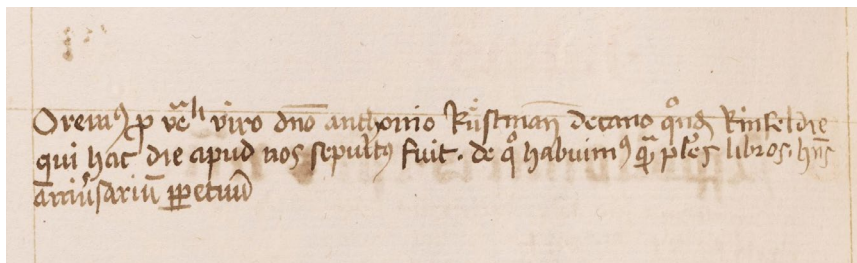 Oremꝰ ꝓ ve̅li viro dn̅o anthonio Rüstman̅ decano qͦnd̅ Rinfeldie
qui hac die apud nos sepultꝰ fuit. de qͦ habuimꝰ libros. hn̅s
an̅iűsariu̅ ꝑpetuu̅